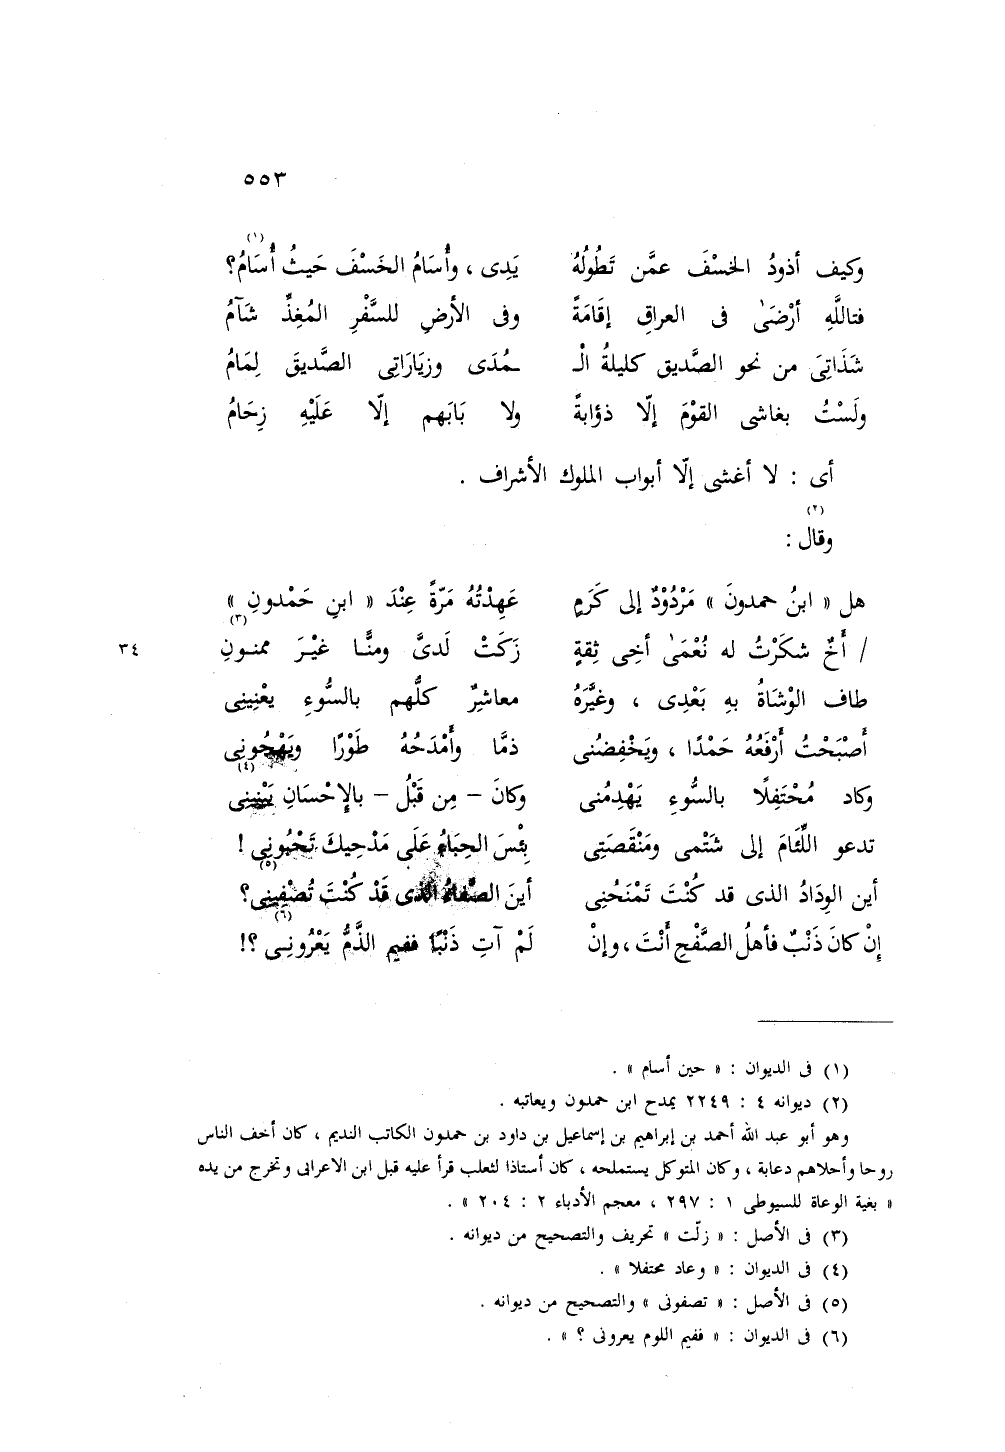 ٥٥٣
وكيف أذودُ الخسْفَ عمَّن تَطُولُهُ يَدِى ، وأُسَامُ الخَسْفَ حَيثُ أُسَامُ؟ (١)
فتاللَّهِ أرْضَىٰ فى العراقِ إقَامَةً وفى الأرضِ للسَّفْرِ المُغِذِّ شَآمُ
شَذَاتِىَ من نحو الصَّديق كليلةُ الْـ ـمُدَى وزيَارَاتِى الصَّديقَ لِمَامُ
ولَسْتُ بغاشى القوْمَ إلّا ذؤابةً ولا بَابَهم إلّا عَلَيْهِ زِحَامُ
أى : لا أغشى إلّا أبواب الملوك الأشراف .
وقال (٢) :
هل « ابنُ حمدونَ » مَرْدُوْدٌ إلى كَرَمٍ عَهِدْتُهُ مَرّةً عِنْدَ « ابنِ حَمْدونِ »
/ أَخٌ شكَرْتُ له نُعْمَىٰ أخِى ثِقةٍ زَكَتْ (٣) لَدىَّ ومنًّا غيْرَ ممنونِ ٣٤
طاف الوْشَاةُ بهِ بَعْدِى ، وغيَّرَهُ معاشِرٌ كلُّهم بالسُّوءِ يعْنِينِى
أَصْبَحْتُ أرْفَعُهُ حَمْدًا ، ويَخْفِضُنى ذمًّا وأَمْدَحُهُ طَوْرًا ويَهْجُونِى
وكاد مُحْتَفِلًا بالسُّوءِ يَهْدِمُنى وكانَ – مِن قَبْلُ – بالإحْسَانِ يَبْنِينِى (٤)
تدعو اللِّئَامَ إلى شَتْمى ومَنْقَصَتِى بِئْسَ الحِبَاءُ عَلَى مَدْحِيكَ تَحْبُونِى !
أين الوِدَادُ الذى قد كُنْتَ تَمْنَحُنِى أينَ الصَّفاءُ الذى قَدْ كُنْتَ تُصْفِينِى (٥)؟
إنْ كانَ ذَنْبٌ فأهلُ الصَّفْحِ أنْتَ ، وإنْ لَمْ آتِ ذَنْبًا ففيم الذَّمُّ يَعْرُونِى (٦) ؟!
(١) فى الديوان : « حين أسام » .
(٢) ديوانه ٤ : ٢٢٤٩ يمدح ابن حمدون ويعاتبه .
وهو أبو عبد الله أحمد بن إبراهيم بن إسماعيل بن داود بن حمدون الكاتب النديم ، كان أخف الناس
روحا وأحلاهم دعابة ، وكان المتوكل يستملحه ، كان أستاذا لثعلب قرأ عليه قبل ابن الاعرابى وتخرج من يده
« بغية الوعاة للسيوطى ١ : ٢٩٧ ، معجم الأدباء ٢ : ٢٠٤ » .
(٣) فى الأصل : « زلّت » تحريف والتصحيح من ديوانه .
(٤) فى الديوان : « وعاد محتفلا » .
(٥) فى الأصل : « تصفونى » والتصحيح من ديوانه .
(٦) فى الديوان : « ففيم اللوم يعرونى ؟ » .